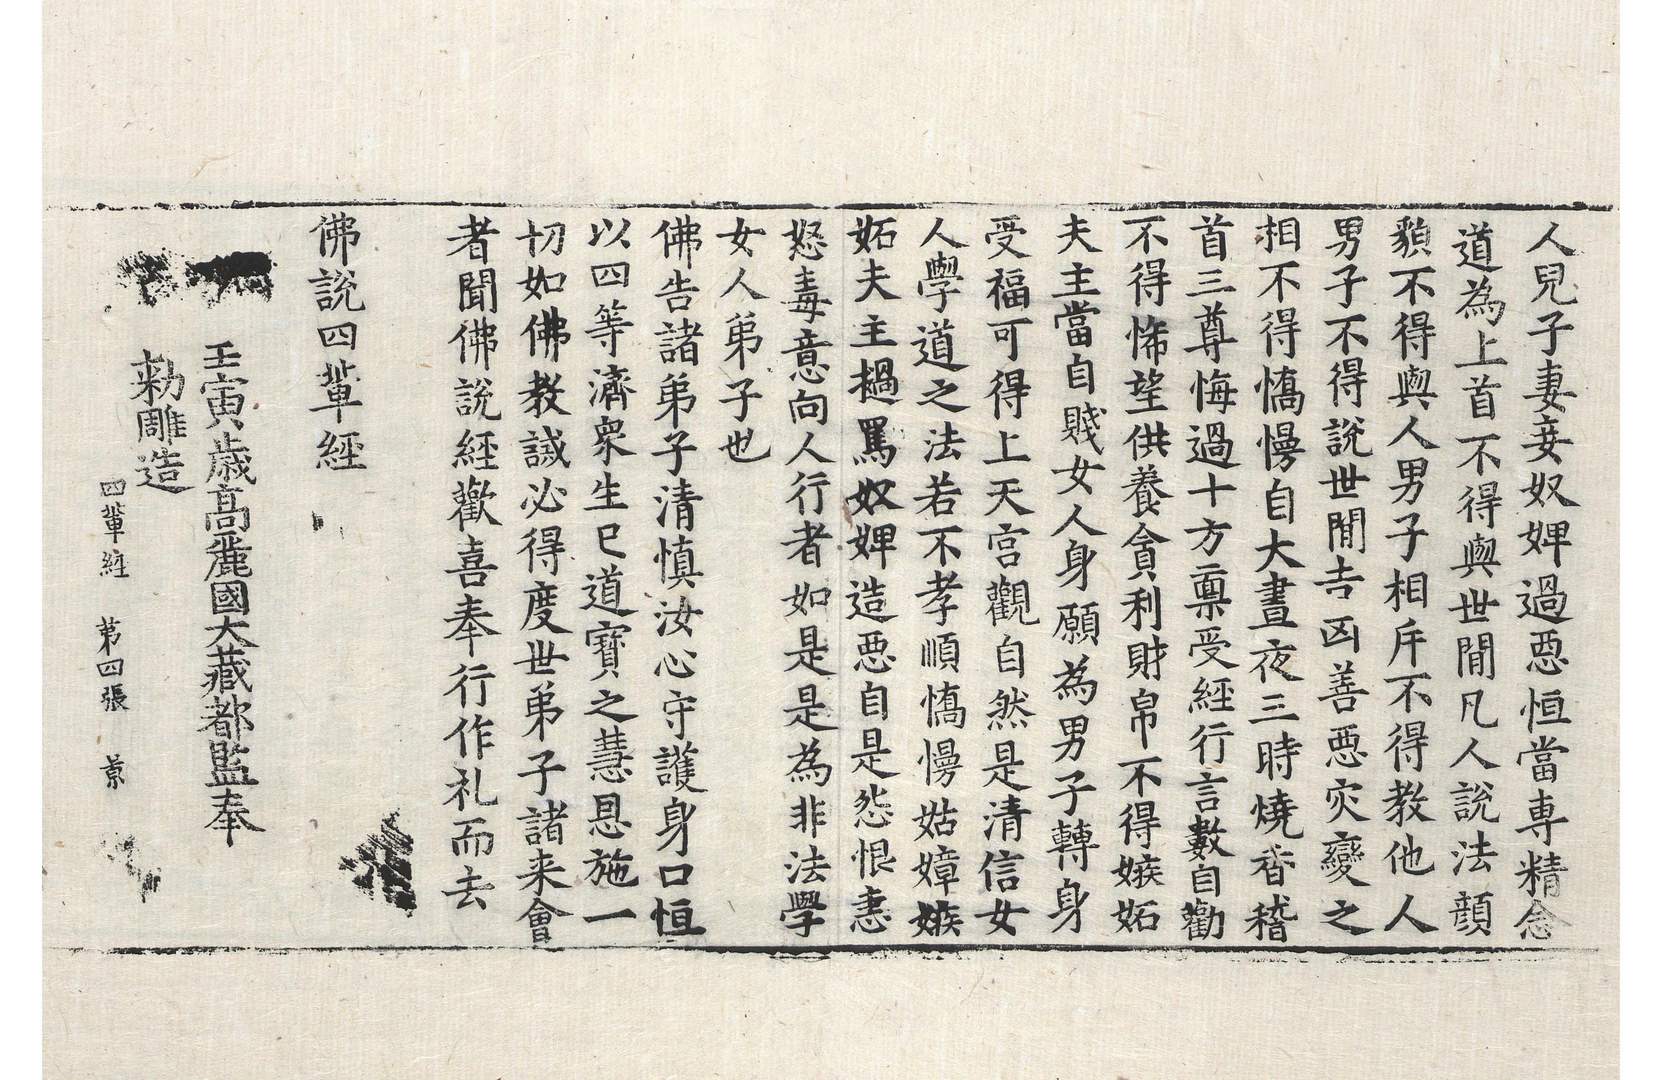 人兒子妻妾奴婢過惡恒當專精念
道為上首不得與世閒凡人說法顔
䫉不得與人男子相斥不得教他人
男子不得說世閒吉凶善惡灾變之
相不得憍慢自大晝夜三時燒香稽
首三尊悔過十方稟受經行言數自勸
不得悕望供養貪利財帛不得嫉妬
夫主當自賤女人身願為男子轉身
受福可得上天宮觀自然是清信女
人學道之法若不孝順憍慢姑嫜嫉
妬夫主撾罵奴婢造惡自是怨恨恚
怒毒意向人行者如是是為非法學
女人弟子也
佛告諸弟子清慎汝心守護身口恒
以四等濟衆生已道寶之慧恩施一
切如佛教誡必得度世弟子諸来會
者聞佛說經歡喜奉行作礼而去
佛說四輩經
壬寅歲高麗國大藏都監奉
勑雕造
四輩経 第四張 景